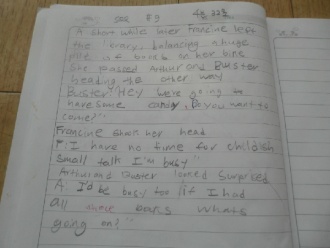 #9
A short while later Francine left
the library balancing a huge
pile of books on her bike
She passed Arthur and Buster
heading the other way
Buster: Hey we're going to
have some candy, Do you want to
come?"
Francine shook her head
F: I have no time for childish
small talk I'm busy"
Arthur and Buster looked surprised
A: I'd be busy too if I had
all those books whats
going on?"